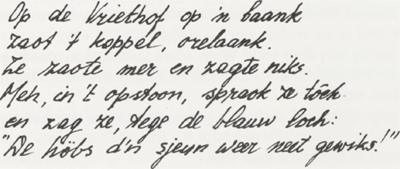 Op de Vriethof op 'n baank
zaot 't koppel, orelaank.
Ze zaote mer en zagte niks.
Meh, in 't opstoon, spraok ze tôch
en zag ze, tege de blauw loch:
"De höbs d'n sjeun weer neet gewiks!"